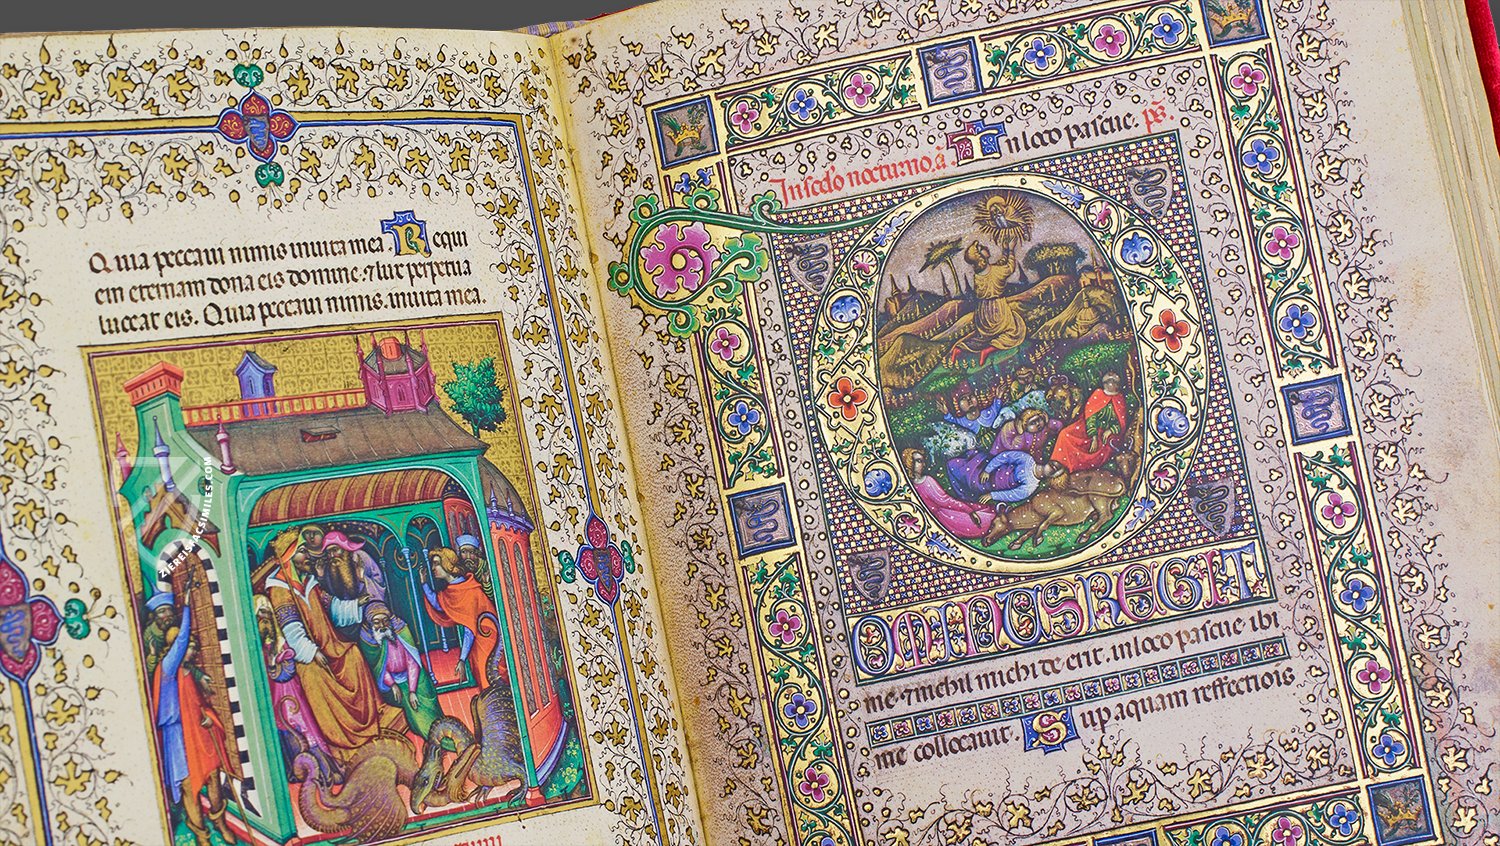 Quia peccaui nimis inuita mea. Requi
em eternam dona eis domine. & lux perpetua
luceat eis. Quia peccaui nimis. inuita mea.
ZIEREISFACSIMILES.COM
In sc̄do nocturno. ā Inloco pascue. ps̄.
DOMINUS REGIT
me & nichil michi de erit. inloco pascue ibi
me collocauit. Sup aquam reffectionis